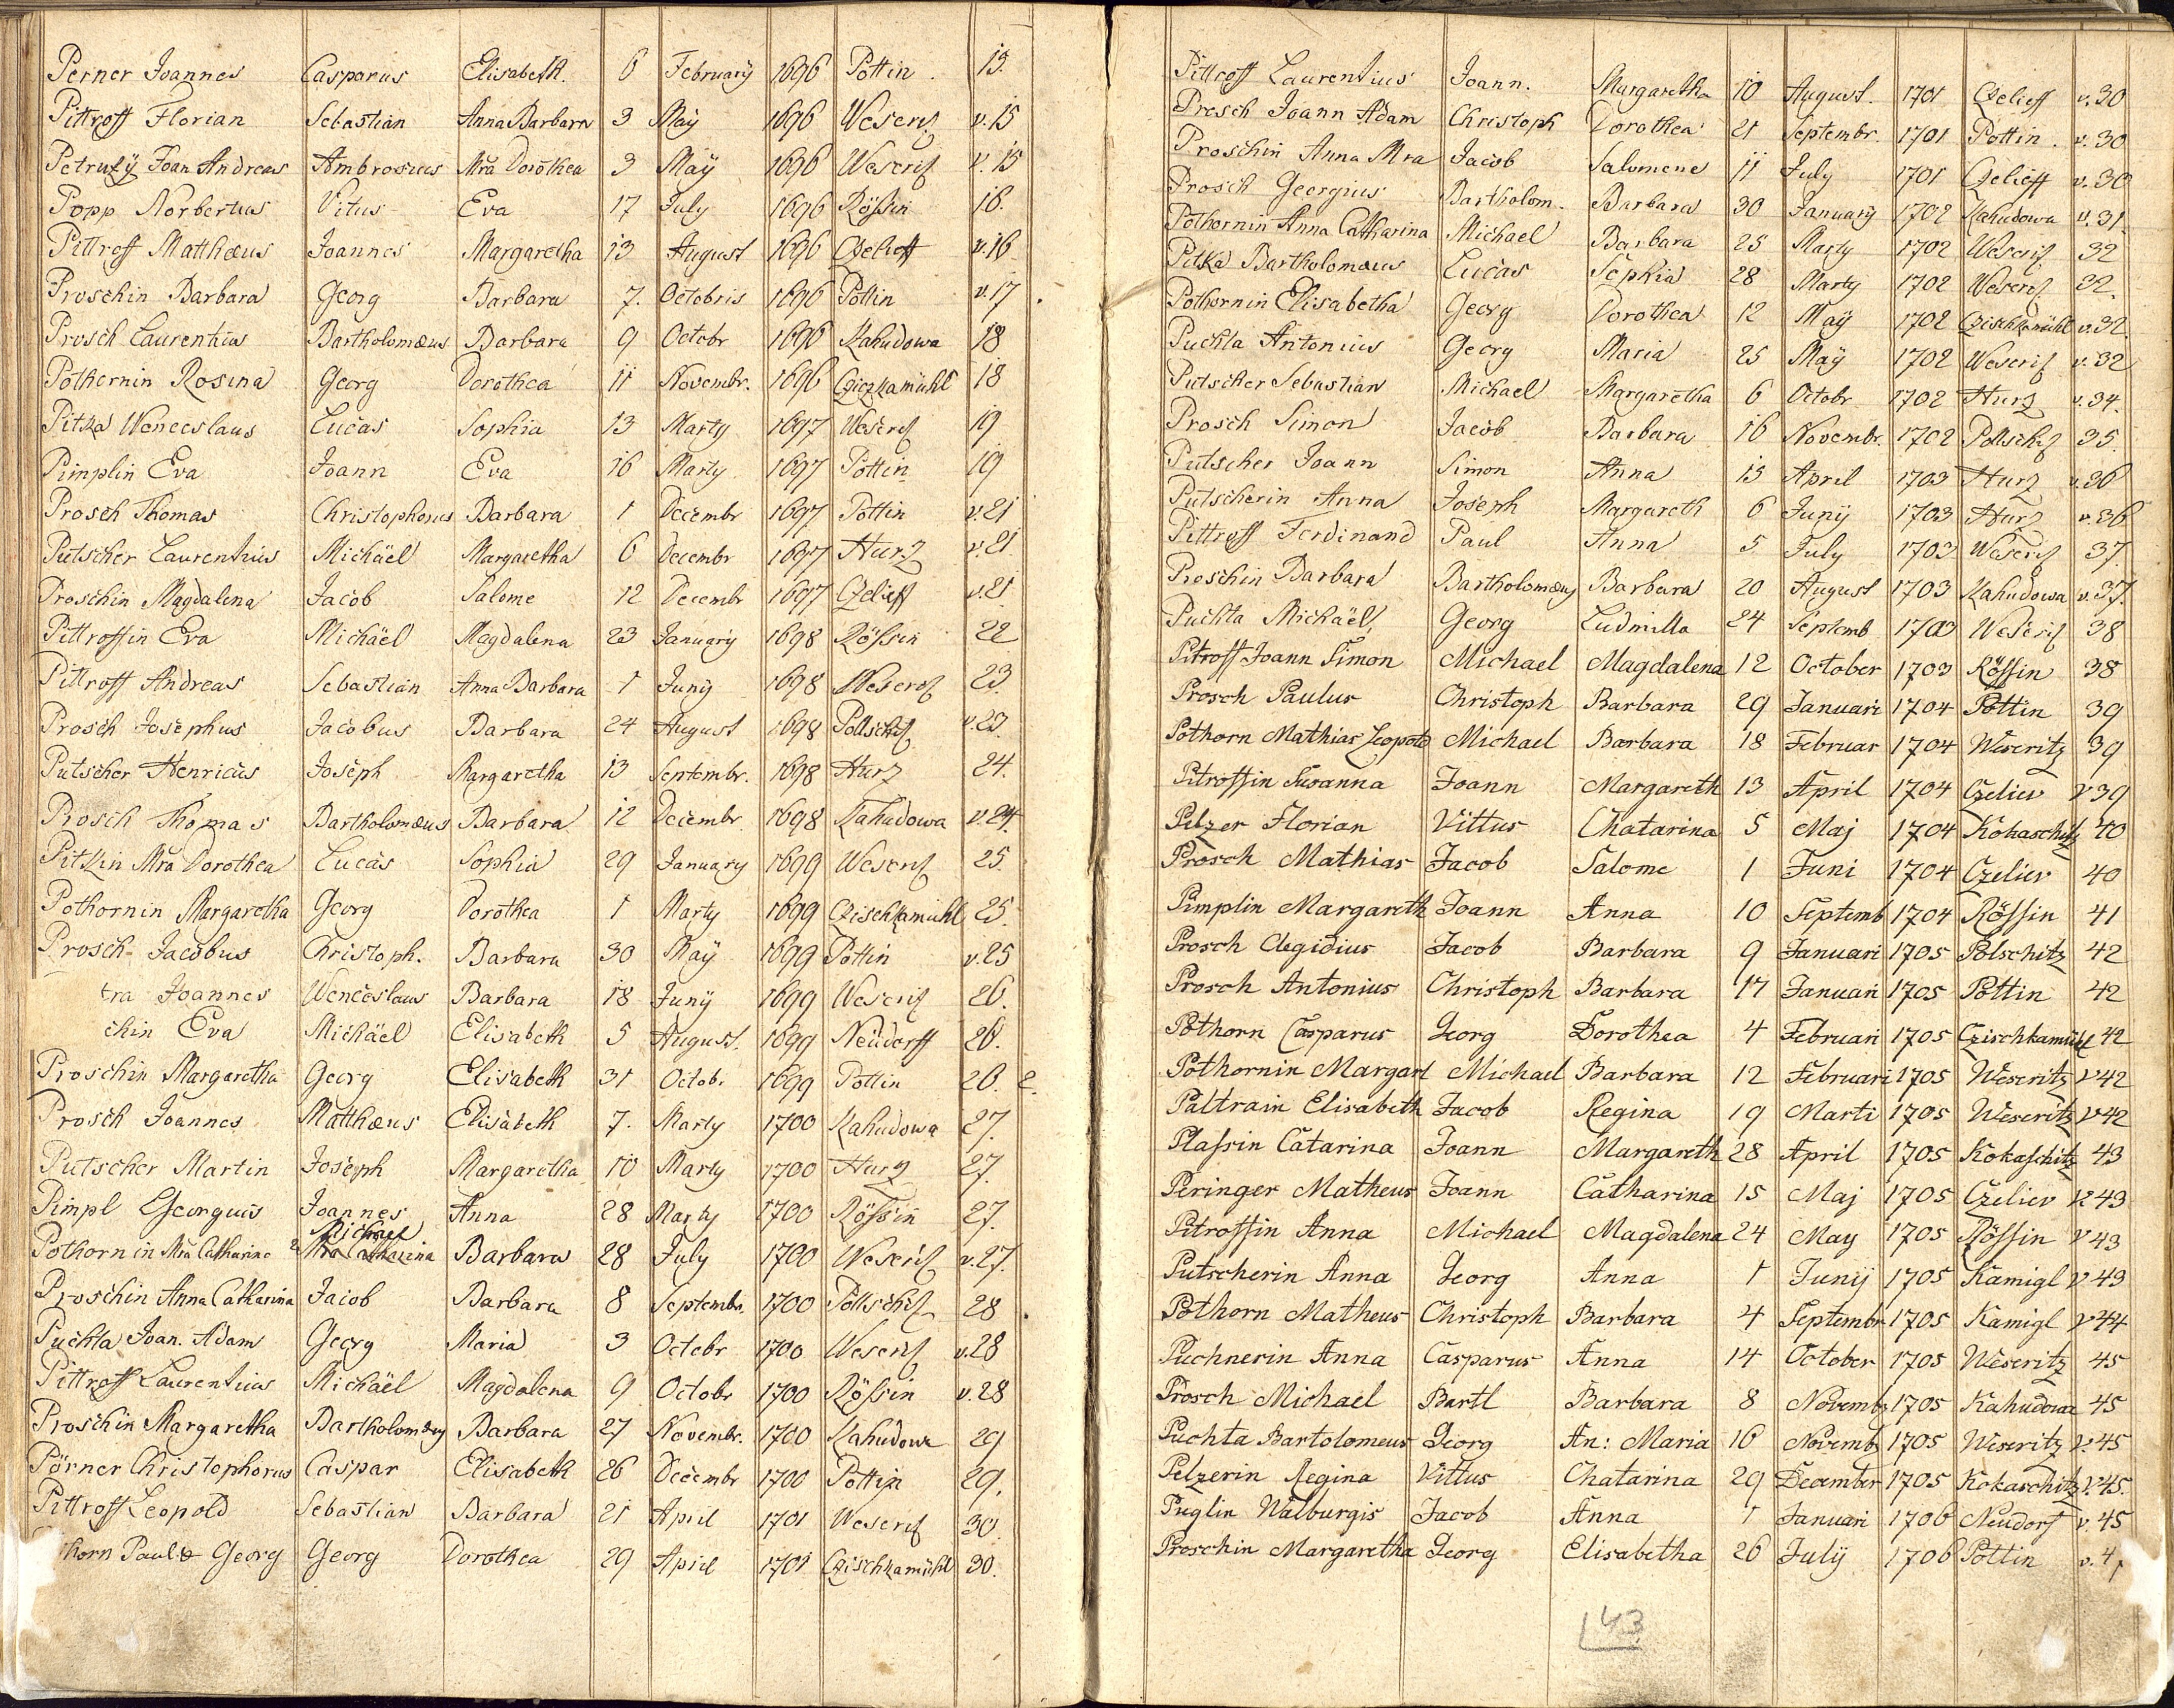 Perner Joannes Casparus Elisabeth. 6 February 1696 Pottin. 15.
Pittroff Florian Sebastian Anna Barbara 3 Maÿ 1696 Weseriz v. 15
Petruzÿ Joan Andreas Ambrosius Mra Dorothea 3 Maÿ 1696 Weseriz v. 15
Popp Norbertus Vitus Eva 17 July 1696 Rössin 16.
Pittroff Matthæus Joannes Margaretha 13 August 1696 Czelieff v. 16
Proschin Barbara Georg Barbara 7. Octobris 1696 Pottin v. 17.
Prosch Laurentius Bartholomæus Barbara 9 Octobr 1696 Kahudowa 18
Pothornin Rosina Georg Dorothea 11 Novembr. 1696 Cziczkamühl 18
Pitka Wenceslaus Lucas Sophia 13 Marty 1697 Weseriz 19
Pimplin Eva Joann Eva 16 Marty 1697 Pottin 19
Prosch Thomas Christophorus Barbara 1 Decembr 1697 Pottin v. 21
Putscher Laurentius Michäel Margaretha 6 Decembr 1697 Hurz v. 21.
Proschin Magdalena Jacob Salome 12 Decembr 1697 Czelieff v. 21
Pittroffin Eva Michäel Magdalena 23 January 1698 Rössin 22
Pittroff Andreas Sebastian Anna Barbara 1 Junÿ 1698 Weseriz 23.
Prosch Josephus Jacobus Barbara 24 August 1698 Pollschiz v. 23.
Putscher Henricus Joseph Margaretha 13 Septembr. 1698 Hurz 24.
Prosch Thomas Bartholomæus Barbara 12 Decembr. 1698 Kahudowa v. 24.
Pitkin Mra Dorothea Lucas Sophia 29 January 1699 Weseriz 25.
Pothornin Margaretha Georg Dorothea 1 Marty 1699 Czischkamühl 25.
Prosch Jacobus Christoph. Barbara 30 Maÿ 1699 Pottin v. 25
tra Joannes Wenceslaus Barbara 18 Junÿ 1699 Weseriz 26.
chin Eva Michäel Elisabeth 5 August. 1699 Neüdorff 26.
Proschin Margaretha Georg Elisabeth 31 Octobr 1699 Pottin 26. 2.
Prosch Joannes Matthæus Elisabeth 7. Marty 1700 Kahudowa 27.
Putscher Martin Joseph Margaretha 10 Marty 1700 Hurz 27.
Pimpl Georguis Joannes Anna 28 Marty 1700 Rössin 27.
Michael
Pothornin Mra Catharina Mra Catharina Barbara 28 July 1700 Weseriz v. 27.
Proschin Anna Catharina Jacob Barbara 8 Septembr. 1700 Pollschiz 28
Puchta Joan. Adam Georg Maria 3 Octobr 1700 Weseriz v. 28
Pittroff Laurentius Michäel Magdalena 9 Octobr 1700 Rössin v. 28
Proschin Margaretha Bartholomæus Barbara 27 Novembr. 1700 Kahudowa 29
Pörner Christophorus Caspar Elisabeth 26 Decembr 1700 Pottin 29.
Pittroff Leopold Sebastian Barbara 21 April 1701 Weseriz 30.
horn Paul & Georg Georg Dorothea 29 April 1701 Czischkamühl 30.
Pittroff Laurentius Joann. Margaretha 10 August. 1701 Czelieff v. 30
Presch Joann Adam Christoph Dorothea 21 Septembr. 1701 Pottin. v. 30
Proschin Anna Mra Jacob Salomene 11 July 1701 Czelieff v. 30
Prosch Georgius Bartholom. Barbara 30 January 1702 Kahudowa v. 31.
Pothornin Anna Catharina Michael Barbara 25 Marty 1702 Weseriz 32
Pitka Bartholomæus Lucas Sophia 28 Marty 1702 Weseriz 32.
Pothornin Elisabetha Georg Dorothea 12 Maÿ 1702 Czischkamühl v. 32.
Puchta Antonius Georg Maria 25 Maÿ 1702 Weseriz v. 32
Putscher Sebastian Michael Margaretha 6 Octobr 1702 Hurz v. 34.
Prosch Simon Jacob Barbara 16 Novembr. 1702 Pollschiz 35.
Putscher Joann Simon Anna 15 April 1703 Hurz v. 36
Putscherin Anna Joseph Margareth 6 Junÿ 1703 Hurz v. 36
Pittroff Ferdinand Paul Anna 5 July 1703 Weseriz 37.
Proschin Barbara Bartholomæus Barbara 20 August 1703 Kahudowa v. 37.
Puchta Michäel Georg Ludmilla 24 Septemb 1703 Weseriz 38
Pitroff Joann Simon Michael Magdalena 12 October 1703 Röffin 38
Prosch Paulus Christoph Barbara 29 Januari 1704 Pottin 39
Pothorn Mathias Leopold Michael Barbara 18 Februar 1704 Weseritz 39
Pitroffin Susanna Joann Margareth 13 April 1704 Czeliev v 39
Pelzer Florian Vittus Chatarina 5 Maj 1704 Kokaschitz 40
Prosch Mathias Jacob Salome 1 Juni 1704 Czeliev 40
Pimplin Margareth Joann Anna 10 Septemb 1704 Rössin 41
Prosch Aegidius Jacob Barbara 9 Januari 1705 Polschitz 42
Prosch Antonius Christoph Barbara 17 Januari 1705 Pottin 42
Pothorn Casparus Georg Dorothea 4 Februari 1705 Czischkamühl 42
Pothornin Margart Michael Barbara 12 Februari 1705 Weseritz v 42
Paltrain Elisabeth Jacob Regina 19 Marti 1705 Weseritz v 42
Plassin Catarina Joann Margareth 28 April 1705 Kokaschitz 43
Peringer Matheus Joann Catharina 15 Maj 1705 Czeliev v 43
Pitroffin Anna Michael Magdalena 24 May 1705 Rössin v 43
Putscherin Anna Georg Anna 1 Junij 1705 Kamigl v 43
Pothorn Matheus Christoph Barbara 4 Septembr 1705 Kamigl v 44
Puchnerin Anna Casparus Anna 14 October 1705 Weseritz 45
Prosch Michael Bartl Barbara 8 Novemb 1705 Kahudowa 45
Puchta Bartolomeus Georg An: Maria 16 Novemb 1705 Weseritz v. 45
Pelzerin Regina Vittus Chatarina 29 December 1705 Kokaschitz v. 45.
Puglin Walburgis Jacob Anna 1 Januari 1706 Neudorf v. 45
Proschin Margaretha Georg Elisabetha 26 Julÿ 1706 Pottin v. 4
43